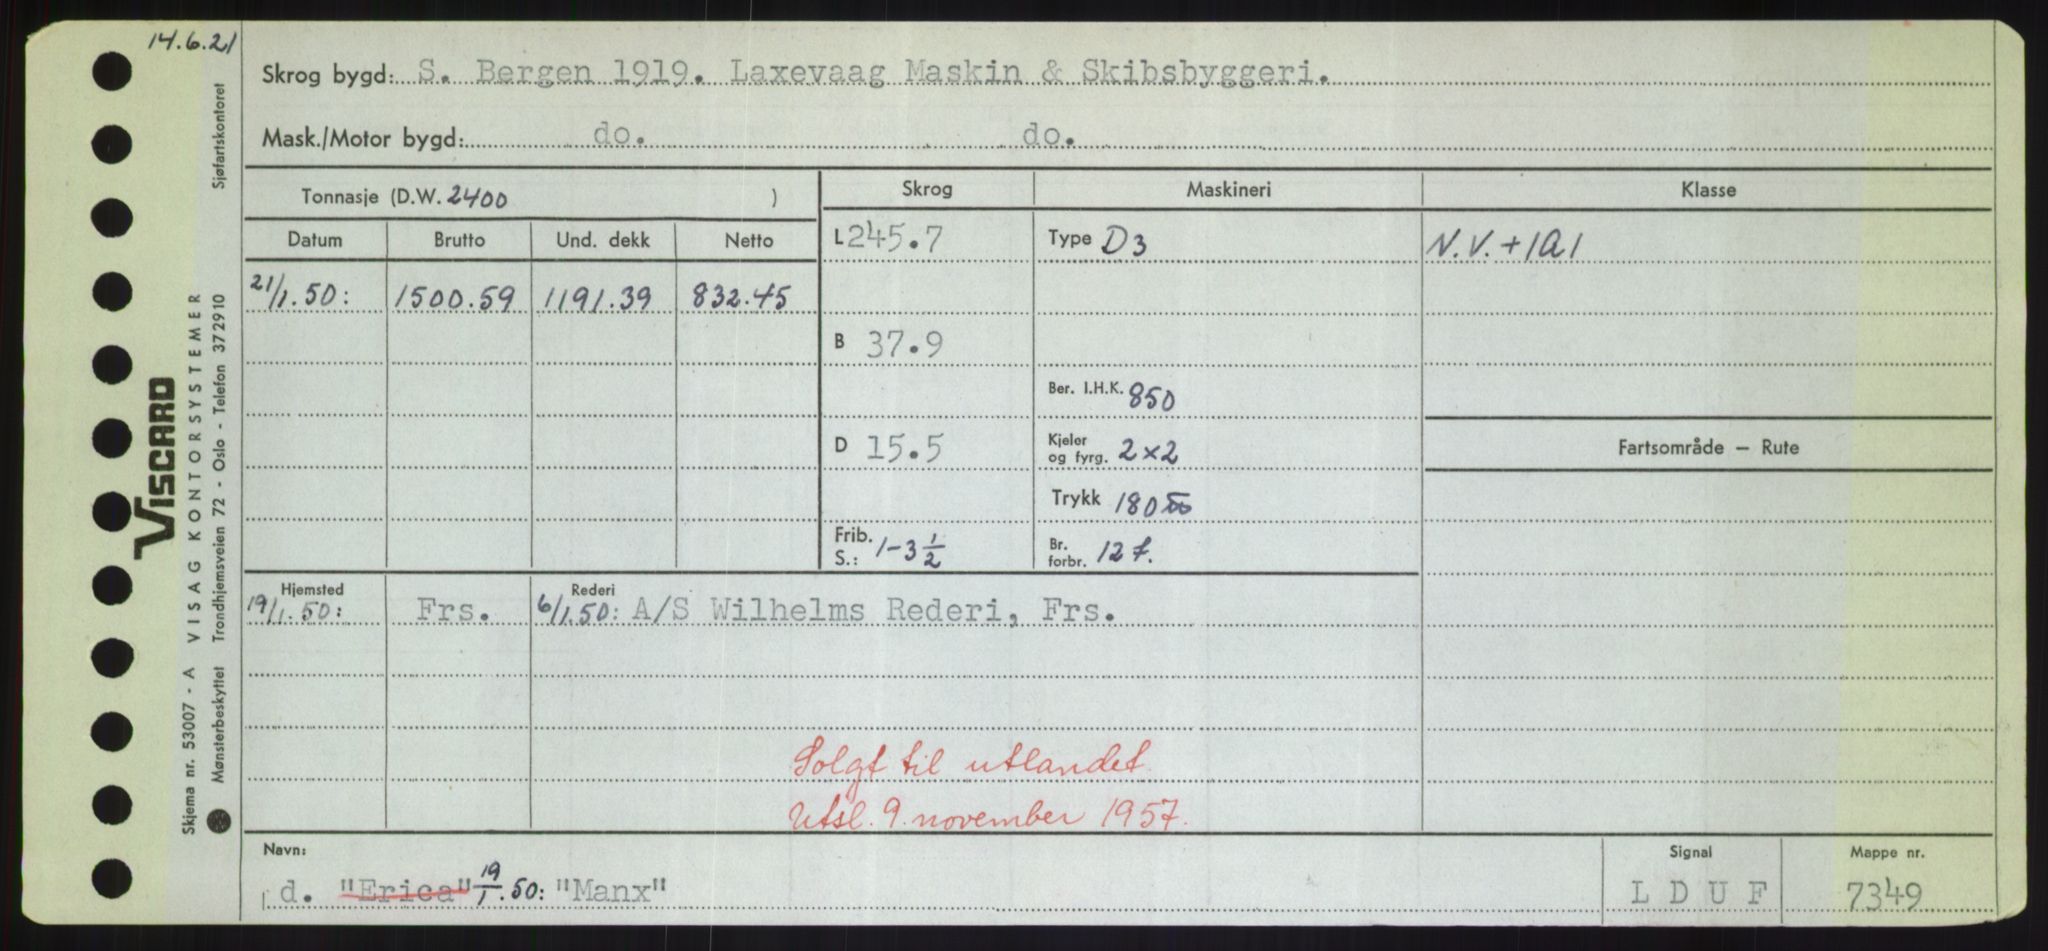 14.6.21
Skrog bygd: S. Bergen 1919. Laxevaag Maskin & Skibsbyggeri.
Mask./Motor bygd: do. do.
Tonnasje (D.W. 2400 ) Skrog Maskineri Klasse
Datum Brutto Und. dekk Netto L 245.7 Type D3 N.V.+1A1
21/1.50: 1500.59 1191.39 832.45
B 37.9
Ber. I.H.K. 850
D 15.5 Kjeler og fyrg. 2x2 Fartsområde — Rute
Trykk 180
Frib. S.: 1-3 1/2 Br. forbr. 12 t.
Hjemsted Rederi
19/1.50: Frs. 6/1.50: A/S Wilhelms Rederi, Frs.
Solgt til utlandet.
Utsl. 9. november 1957.
Navn: Signal Mappe nr.
d. "Erica" 19/1.50: "Manx" L D U F 7349
VISCARD
Skjema nr. 53007 - A VISAG KONTORSYSTEMER
Mønsterbeskyttet Trondhjemsveien 72 - Oslo - Telefon 372910 Sjøfartskontoret